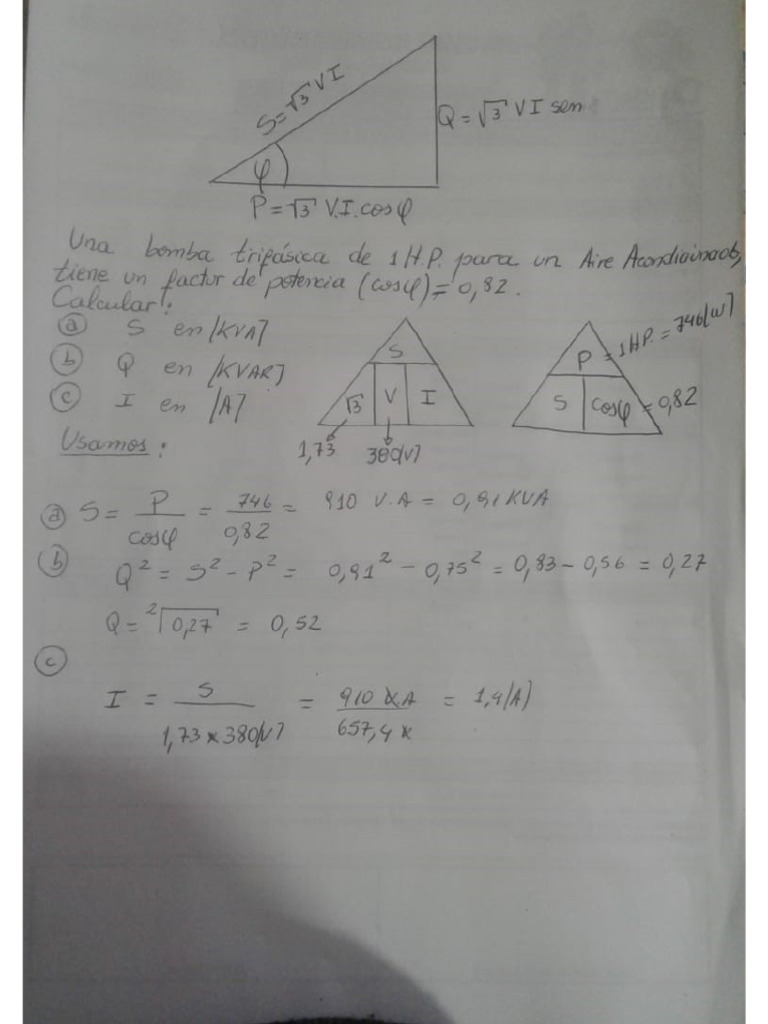 S=√3 V I
Q=√3 V I sen
φ
P=√3 V.I.cosφ
Una bomba trifásica de 1 H.P. para un Aire Acondicionado,
tiene un factor de potencia (cosφ)=0,82.
Calcular:
ⓐ S en [KVA]
ⓑ Q en [KVAR]
ⓒ I en [A]
Usamos:
S
√3 V I
1,73 380[V]
P = 1 H.P. = 746[W]
S cosφ = 0,82
ⓐ S = P/cosφ = 746/0,82 = 910 V.A = 0,91 KVA
ⓑ Q² = S² - P² = 0,91² - 0,75² = 0,83 - 0,56 = 0,27
Q = ²√0,27 = 0,52
ⓒ
I = S/1,73 x 380[V] = 910 V.A/657,4 V = 1,4[A]